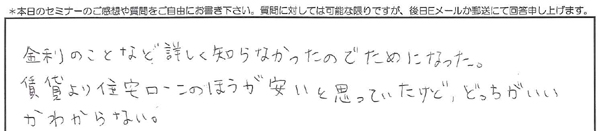 *本日のセミナーのご感想や質問をご自由にお書き下さい。質問に対しては可能な限りですが、後日Eメールか郵送にて回答申し上げます。
金利のことなど詳しく知らなかったのでためになった。
賃貸より住宅ローンのほうが安いと思っていたけど、どっちがいい
かわからない。